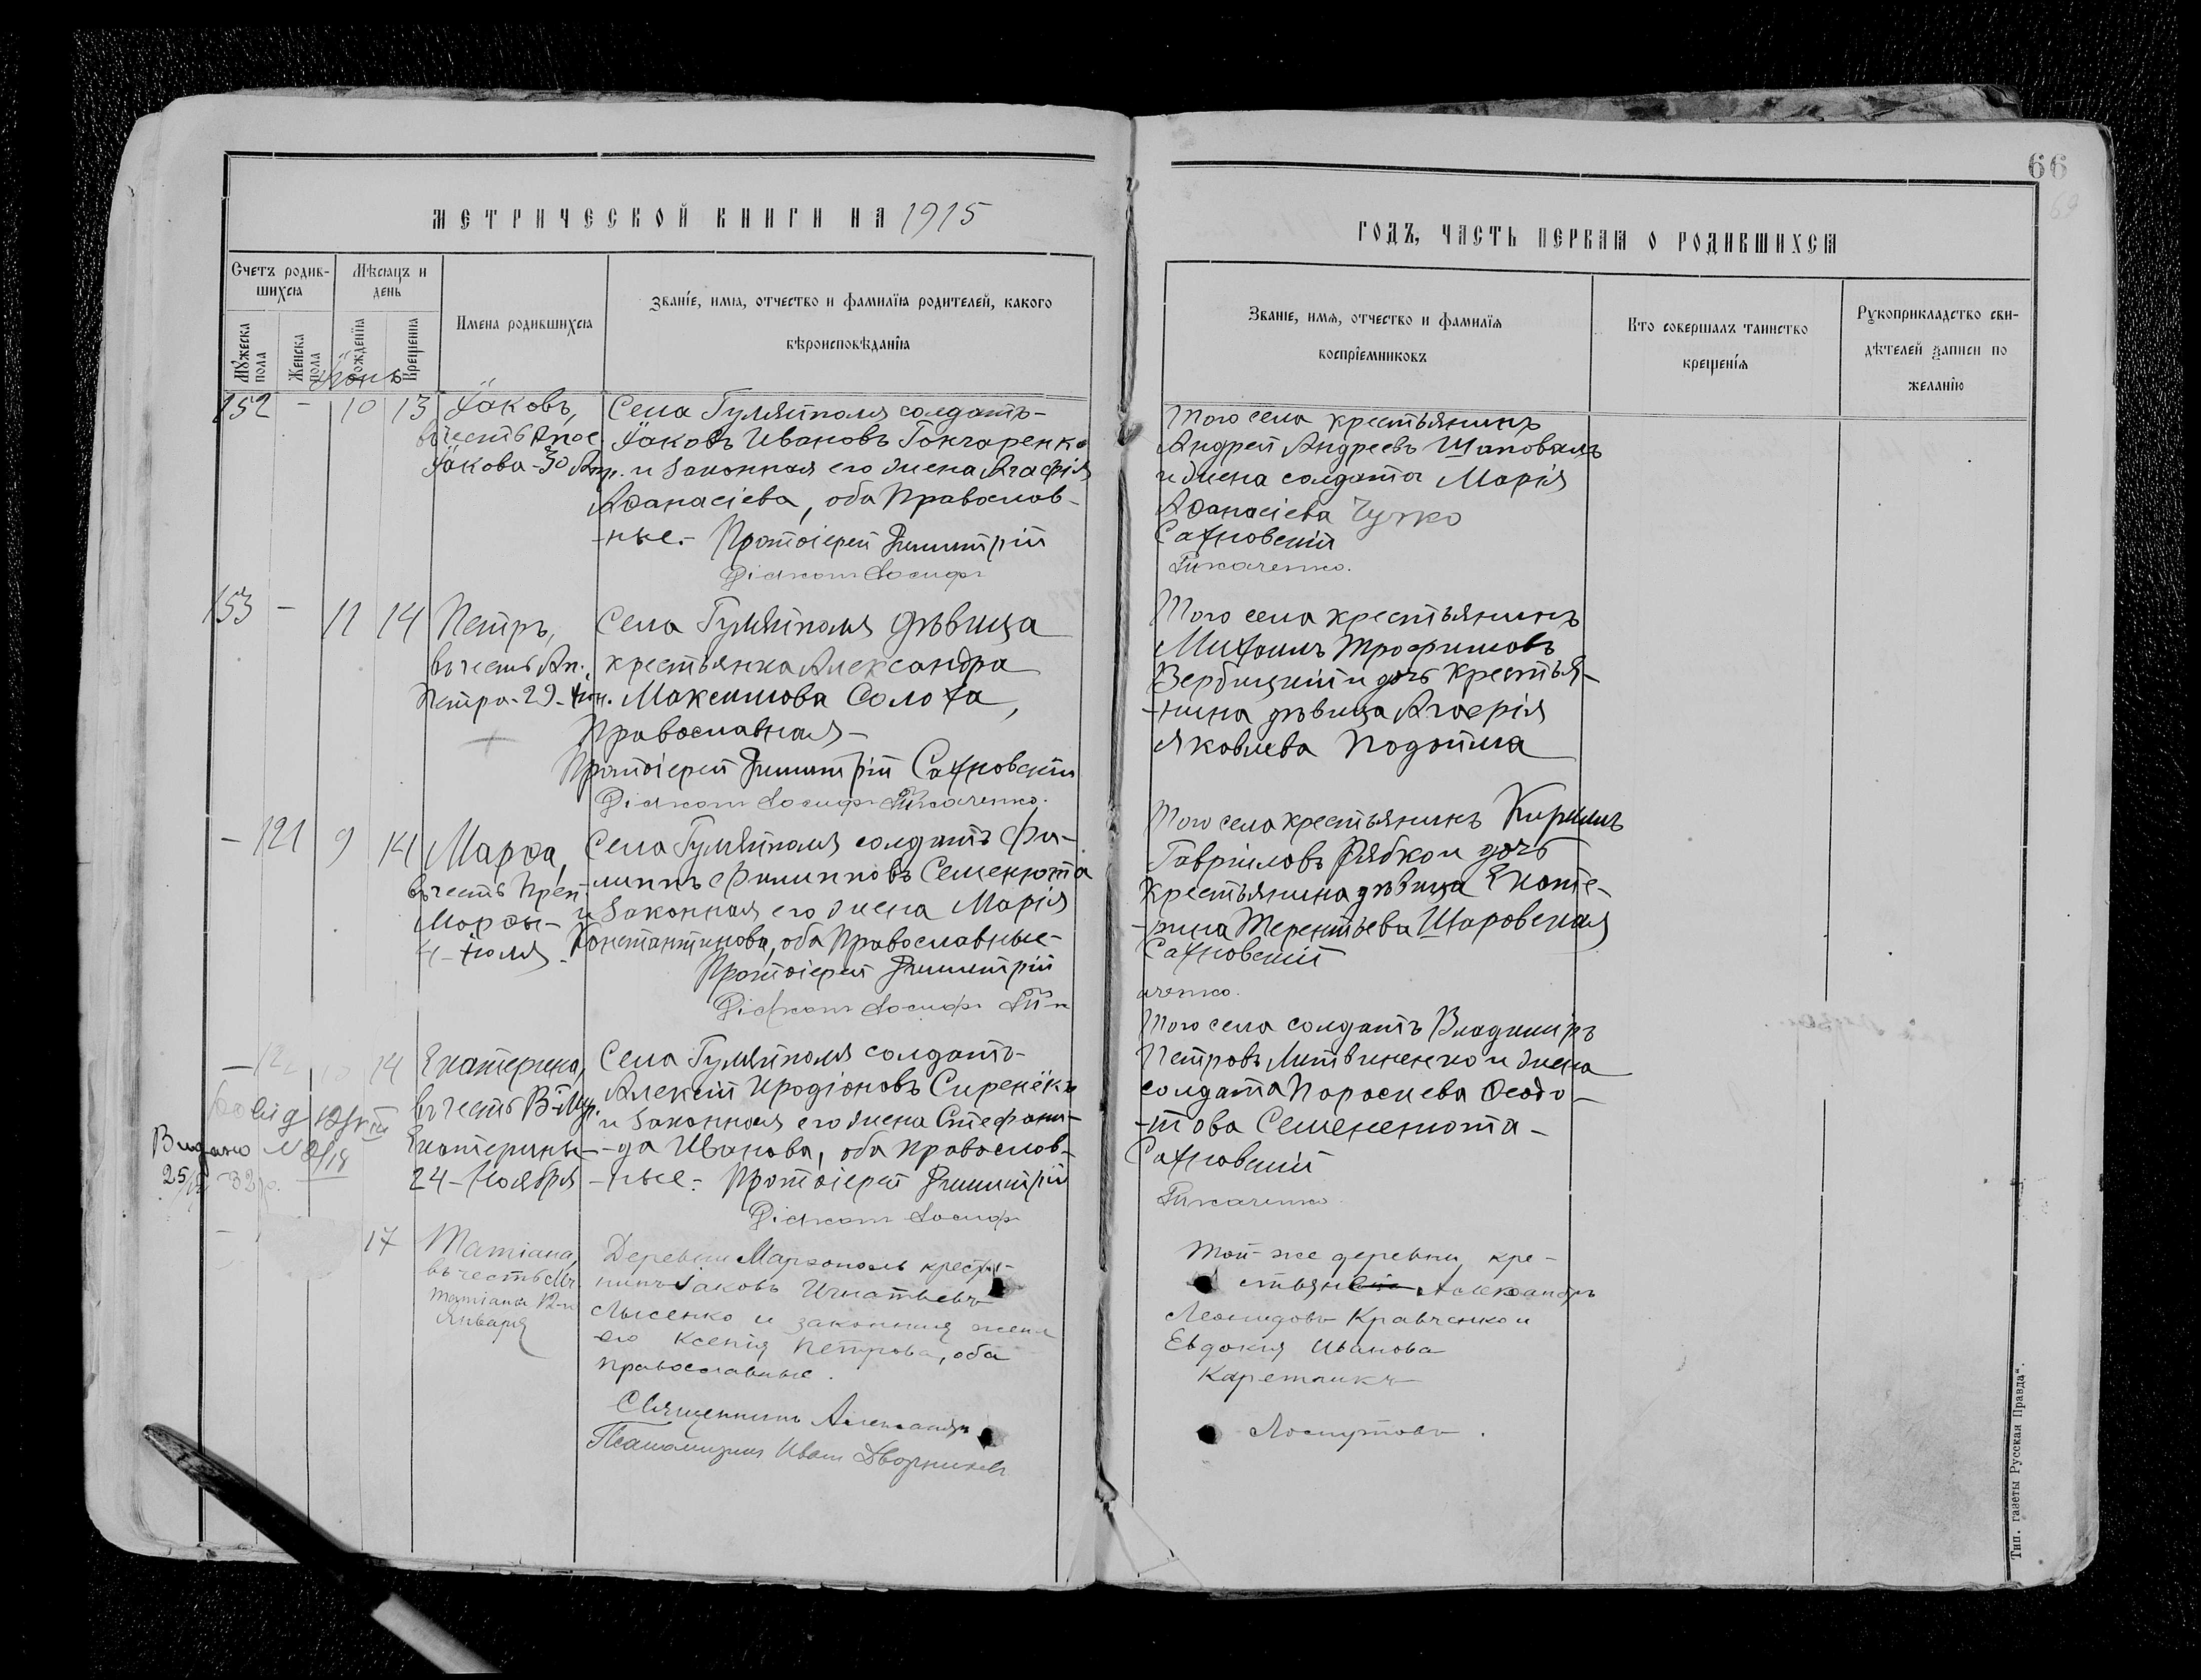 66
69
МЕТРИЧЕСКОЙ КНИГИ НА 1915
Счетъ родив-
шихся
Мѣсяцъ и
день
Мужеска
пола
Женска
пола
Рожденія
Крещенія
Имена родившихся
Званіе, имя, отчество и фамилія родителей, какого
вѣроисповѣданія
Іюнь
152 - 10 13
Іаковъ,
въ честь Апос.
Іакова - 30 Апр.
Села Гуляйполя солдатъ-
Іаковъ Ивановъ Гончаренко
и законная его жена Агафія
Аѳанасіева, оба Православ-
-ные.- Протоіерей Димитрій
Діаконъ Іосифъ
153 - 11 14
Петръ,
въ честь Ап.
Петра - 29 - Іюн.
Села Гуляйполя дѣвица
крестьянка Александра
Максимова Солоха,
Православная -
Протоіерей Димитрій Сахновскій
Діаконъ Іосифъ Ткаченко.
- 121 9 14
Марѳа,
въ честь Преп.
Марѳы -
4 - Іюля -
Села Гуляйполя солдатъ Фи-
липпъ Филипповъ Семенюта
и законная его жена Марія
Константинова, оба Православные -
Протоіерей Димитрій
Діаконъ Іосифъ
- 122 10 14
Екатерина,
въ честь В-Муч.
Екатерины -
24 - Ноября
Села Гуляйполя солдатъ -
Алексій Иродіоновъ Сиренёкъ
и законная его жена Стефани-
-да Иванова, оба Православ-
-ные - Протоіерей Димитрій
Діаконъ Іосифъ
Видано
25
32 р.
17
Татіана,
въ честь Мч.
Татіаны 12-го
Января
Деревни Марзополь крестья-
нинъ Іаковъ Игнатьевъ
Лысенко и законная жена
его Ксенія Петрова, оба
православные.
Священникъ Александръ
Псаломщикъ Иванъ Дворниковъ
ГОДЪ, ЧАСТЬ ПЕРВАЯ О РОДИВШИХСЯ
Званіе, имя, отчество и фамилія
воспріемниковъ
Кто совершалъ таинство
крещенія
Рукоприкладство сви-
дѣтелей записи по
желанію
Того села крестьянинъ
Андрей Андреевъ Шаповалъ
и жена солдата Марія
Аѳанасіева Чучко
Сахновскій
Ткаченко.
Того села крестьянинъ
Михаилъ Трофимовъ
Вербицкій и дочь крестья-
-нина дѣвица Агафія
Яковлева Подойма
Того села крестьянинъ Кириллъ
Гавріиловъ Рябко и дочь
крестьянина дѣвица Екате-
-рина Терентьева Шаровская
Сахновскій
аченко.
Того села солдатъ Владиміръ
Петровъ Литвиненко и жена
солдата Параскева Ѳеодо-
-това Семененюта -
Сахновскій
Ткаченко
Той-же деревни, кре-
стьяне Александръ
Леонидовъ Кравченко и
Евдокія Иванова
Каретникъ
Лоскутовъ.
Тип. газеты Русская Правда".